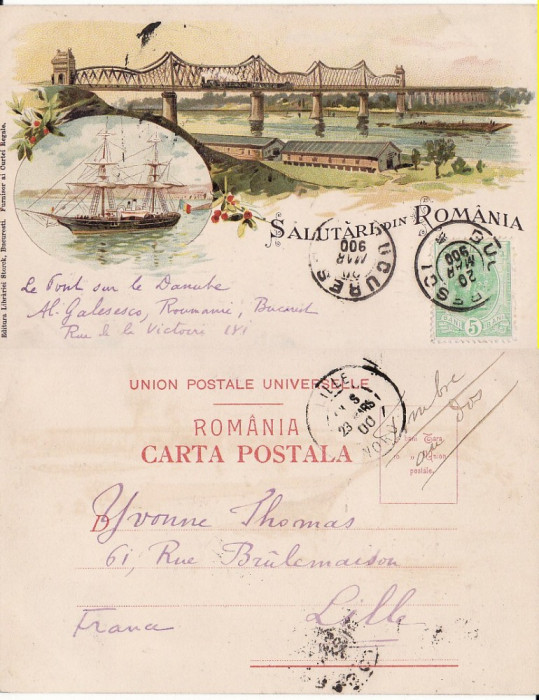 Editura Librăriei Storck, Bucuresti. Furnisor al Curtei Regale.
SALUTĂRI DIN ROMÂNIA
BUCURESCI
20
MAR
900
BUCURESCI
20
MAR
900
BANI 5 BANI
Le Pont sur le Danube
Al. Galesesco, Roumanie, Bucarest
Rue de la Victoire 181
UNION POSTALE UNIVERSELLE
ROMÂNIA
CARTA POSTALA
LILLE
23 MARS
00
NORD
timbre
au dos
postale.
D
Yvonne Thomas
61, Rue Brûlemaison
Lille
France